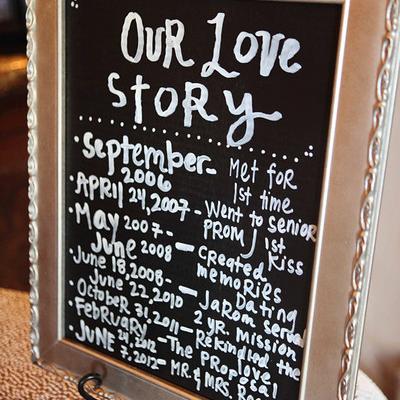 OUR LOVE
STORY
• September - Met for
2006 1st time
• APRIL 24, 2007 - Went to SENIOR
PROM / 1st
• MAY 2007 - Kiss
June 2008 - Created
memories
June 18, 2008 - Dating
June 22, 2010 JaROM Served
2 YR. Mission
• October 31, 2011 - Rekindled the
• February
The PROPOSAL
• JUNE 7, 2012 - MR. & MRS.